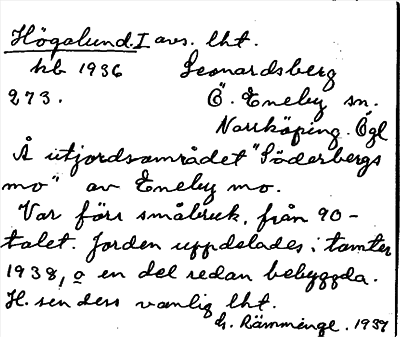 Högalund. I avs. lht.
hb 1936 Leonardsberg
273. Ö. Eneby sn.
Norrköping. Ögl
Å utjordsområdet "Söderbergs
mo" av Eneby mo.
Var förr småbruk, från 90-
talet. Jorden uppdelades i tomter
1938, o en del redan bebyggda.
H. sen dess vanlig lht.
h. Rämminge. 1937